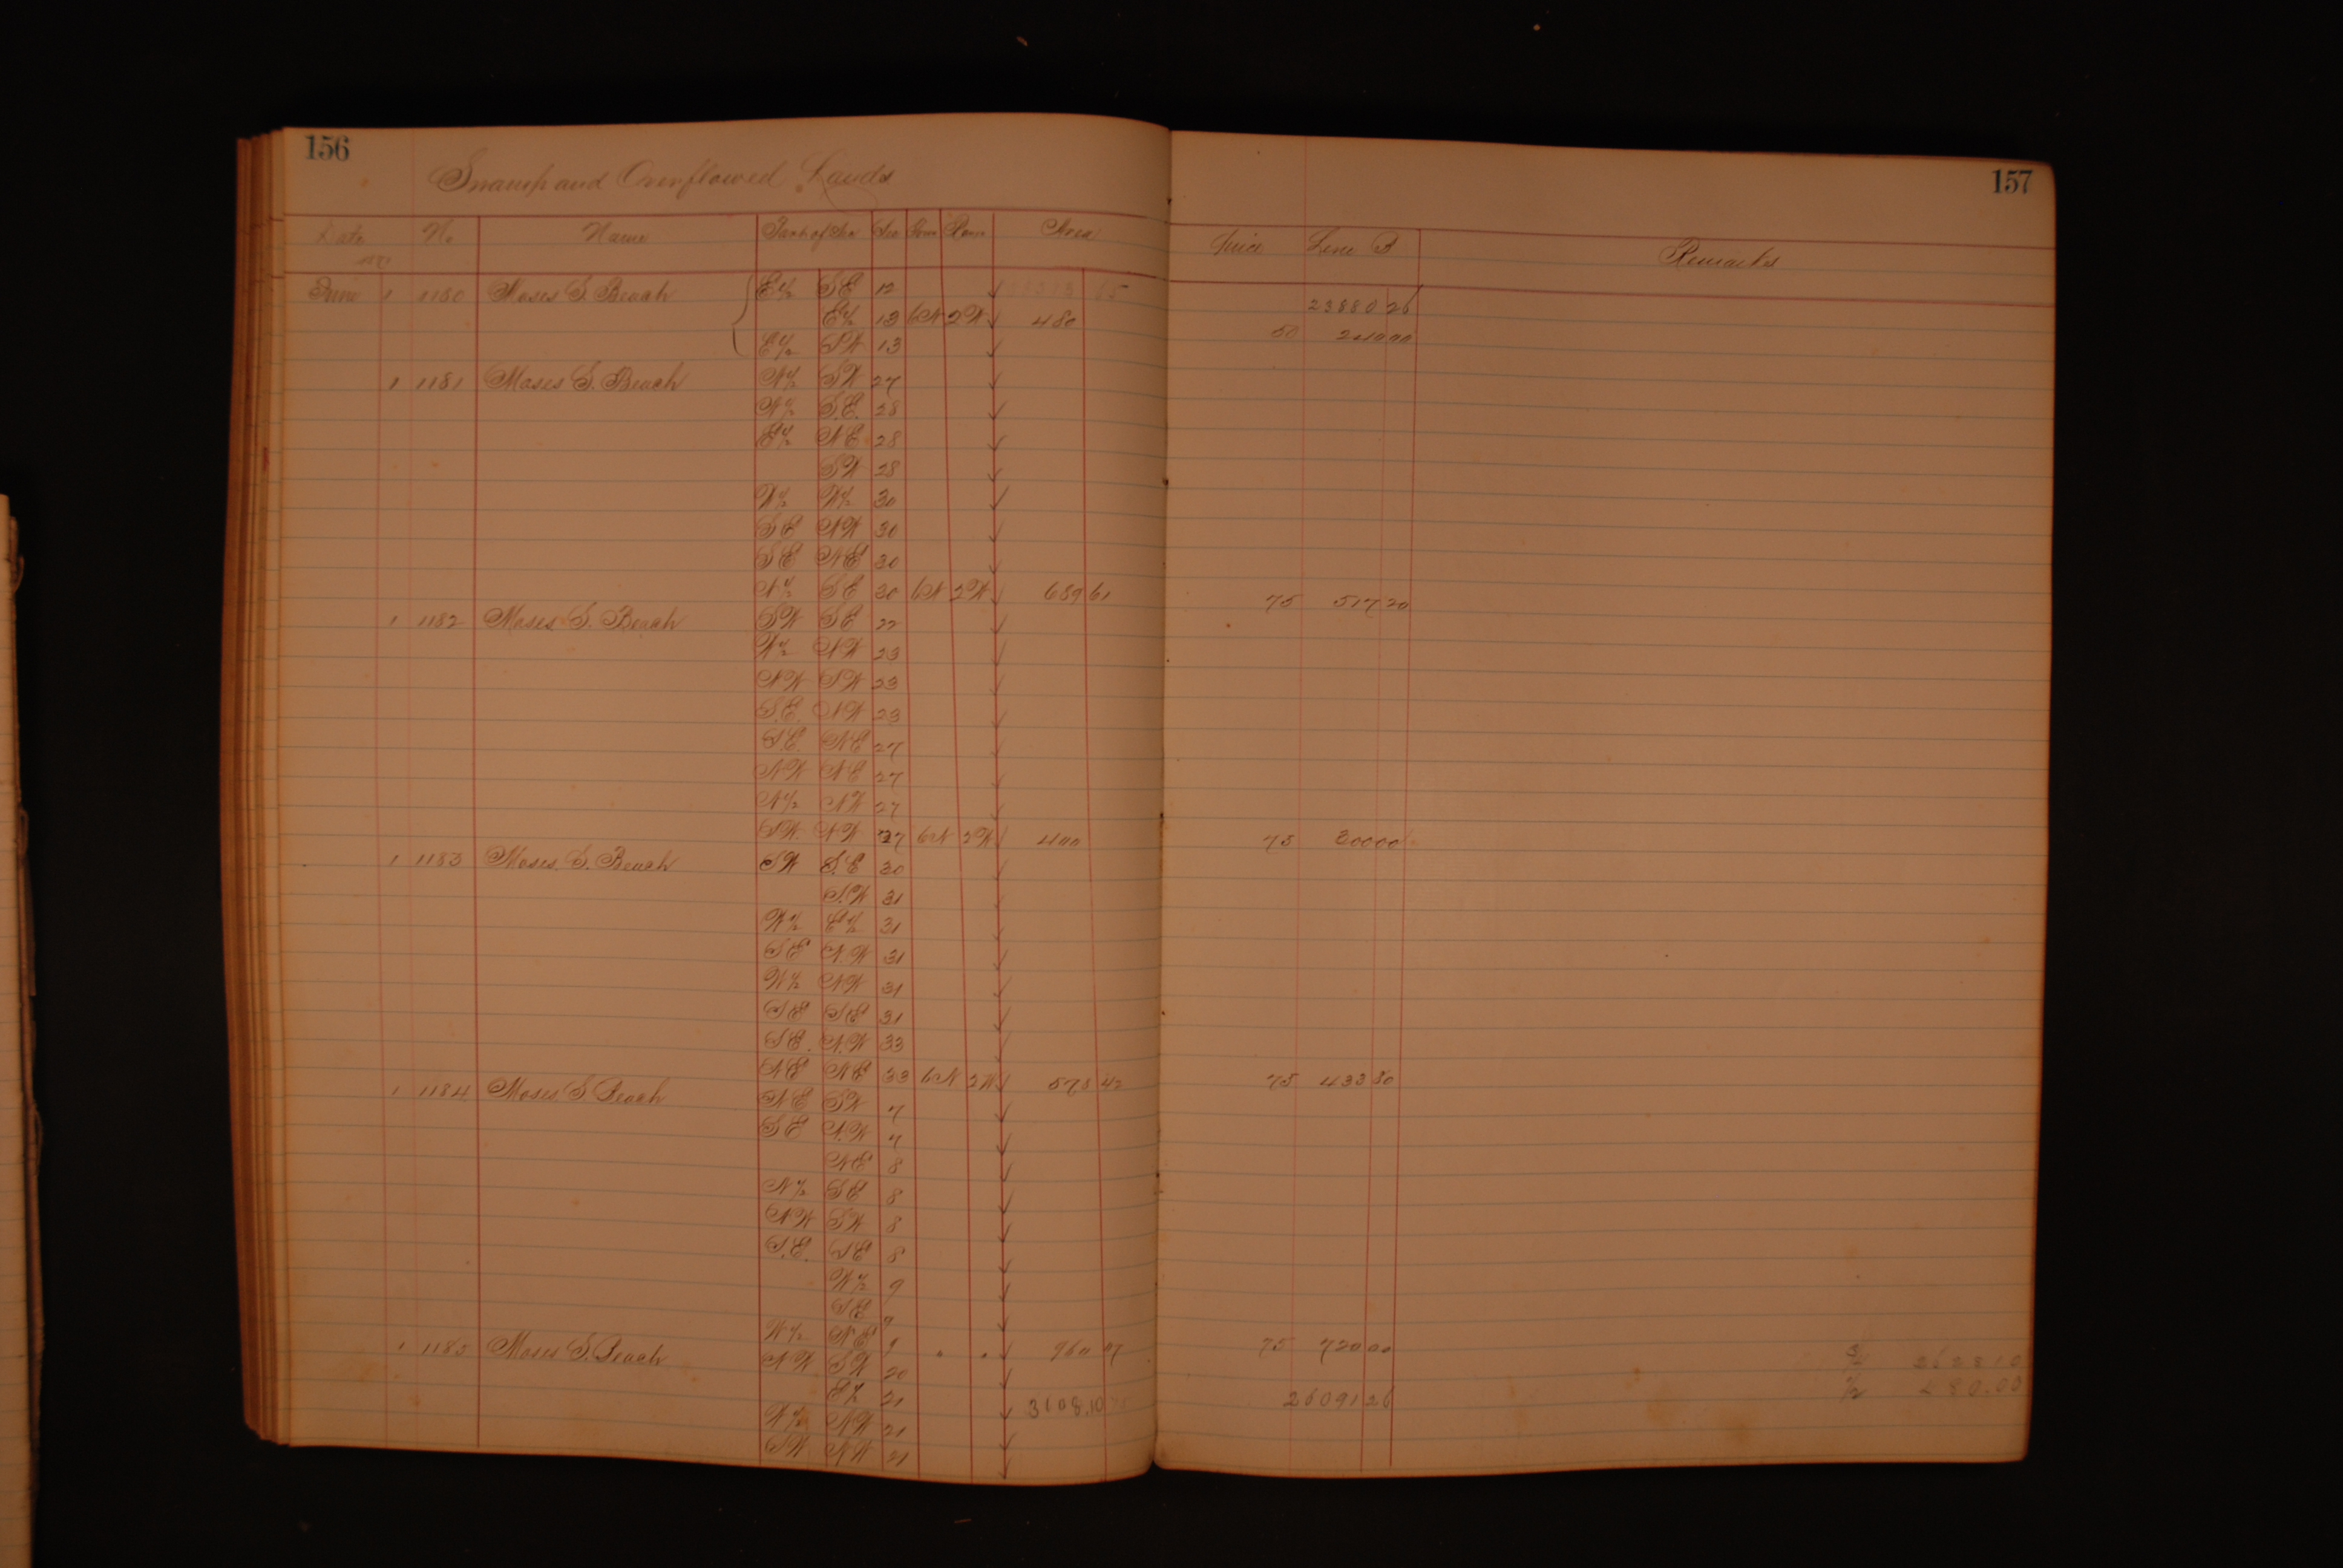 156
157
Swamp and Overflowed Lands
Date No Name Part of Sec Sec Town Range Area Price Line B Remarks
June 1 1180 Moses S. Beach E½ SE 12
23880 26
E½ 13 6N 2W 480 50 240 00
E½ SW 13
1 1181 Moses S. Beach N½ SW 27
N½ S.E. 28
E½ NE 28
SW 28
W½ W½ 30
SE NW 30
SE NE 30
N½ SE 30 6N 2W 689 61 75 517 20
1 1182 Moses S. Beach SW SE 22
W½ NW 23
NW SW 23
S.E. NW 23
S.E. NE 27
NW NE 27
N½ NW 27
SW NW 27 6N 2W 400 75 300 00
1 1183 Moses S. Beach SW S.E 30
S.W 31
W½ E½ 31
SE N.W 31
W½ NW 31
SE SE 31
SE. N.W 33
NE NE 33 6N 2W 578 42 75 433 80
1 1184 Moses S. Beach NE SW 7
SE N.W 7
NE 8
N½ SE 8
NW SW 8
S.E. SE 8
W½ 9
SE 9
W½ NE 9 " " 960 07 75 720 00
1 1185 Moses S. Beach NW SW 20
E½ 21
3108.10 26091 26
W½ NW 21
SW NW 21
¾ 2628 10
½ 480.00